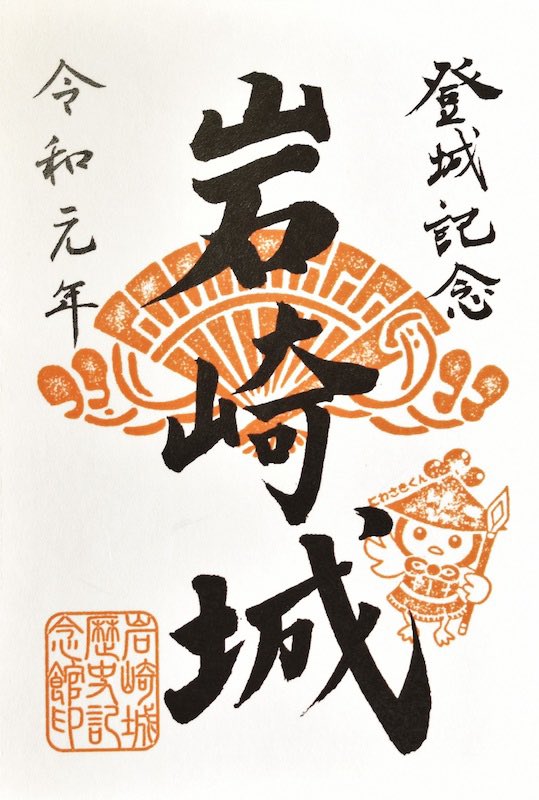 登城記念
岩崎城
令和元年
にわさきくん
岩崎城
歴史記
念館印